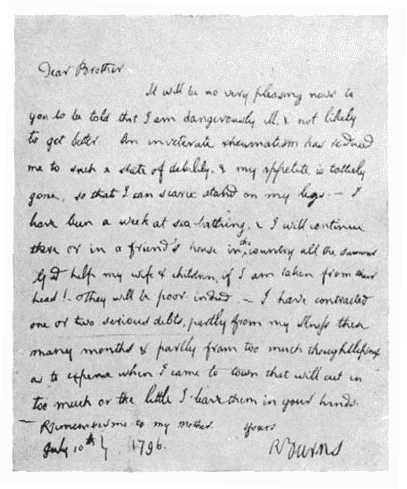 Dear Brother
It will be no very pleasing news to
you to be told that I am dangerously ill, & not likely
to get better. An inveterate rheumatism has reduced
me to such a state of debility, & my appetite is totally
gone, so that I can scarce stand on my legs. — I
have been a week at sea-bathing, & I will continue
there or in a friend's house in the country all the summer
God help my wife & children, if I am taken from their
head! — They will be poor indeed. — I have contracted
one or two serious debts, partly from my illness these
many months & partly from too much thoughtlessness
as to expense when I came to town that will cut in
too much on the little I leave them in your hands.
— Remember me to my mother. Yours
July 10th 1796. RBurns